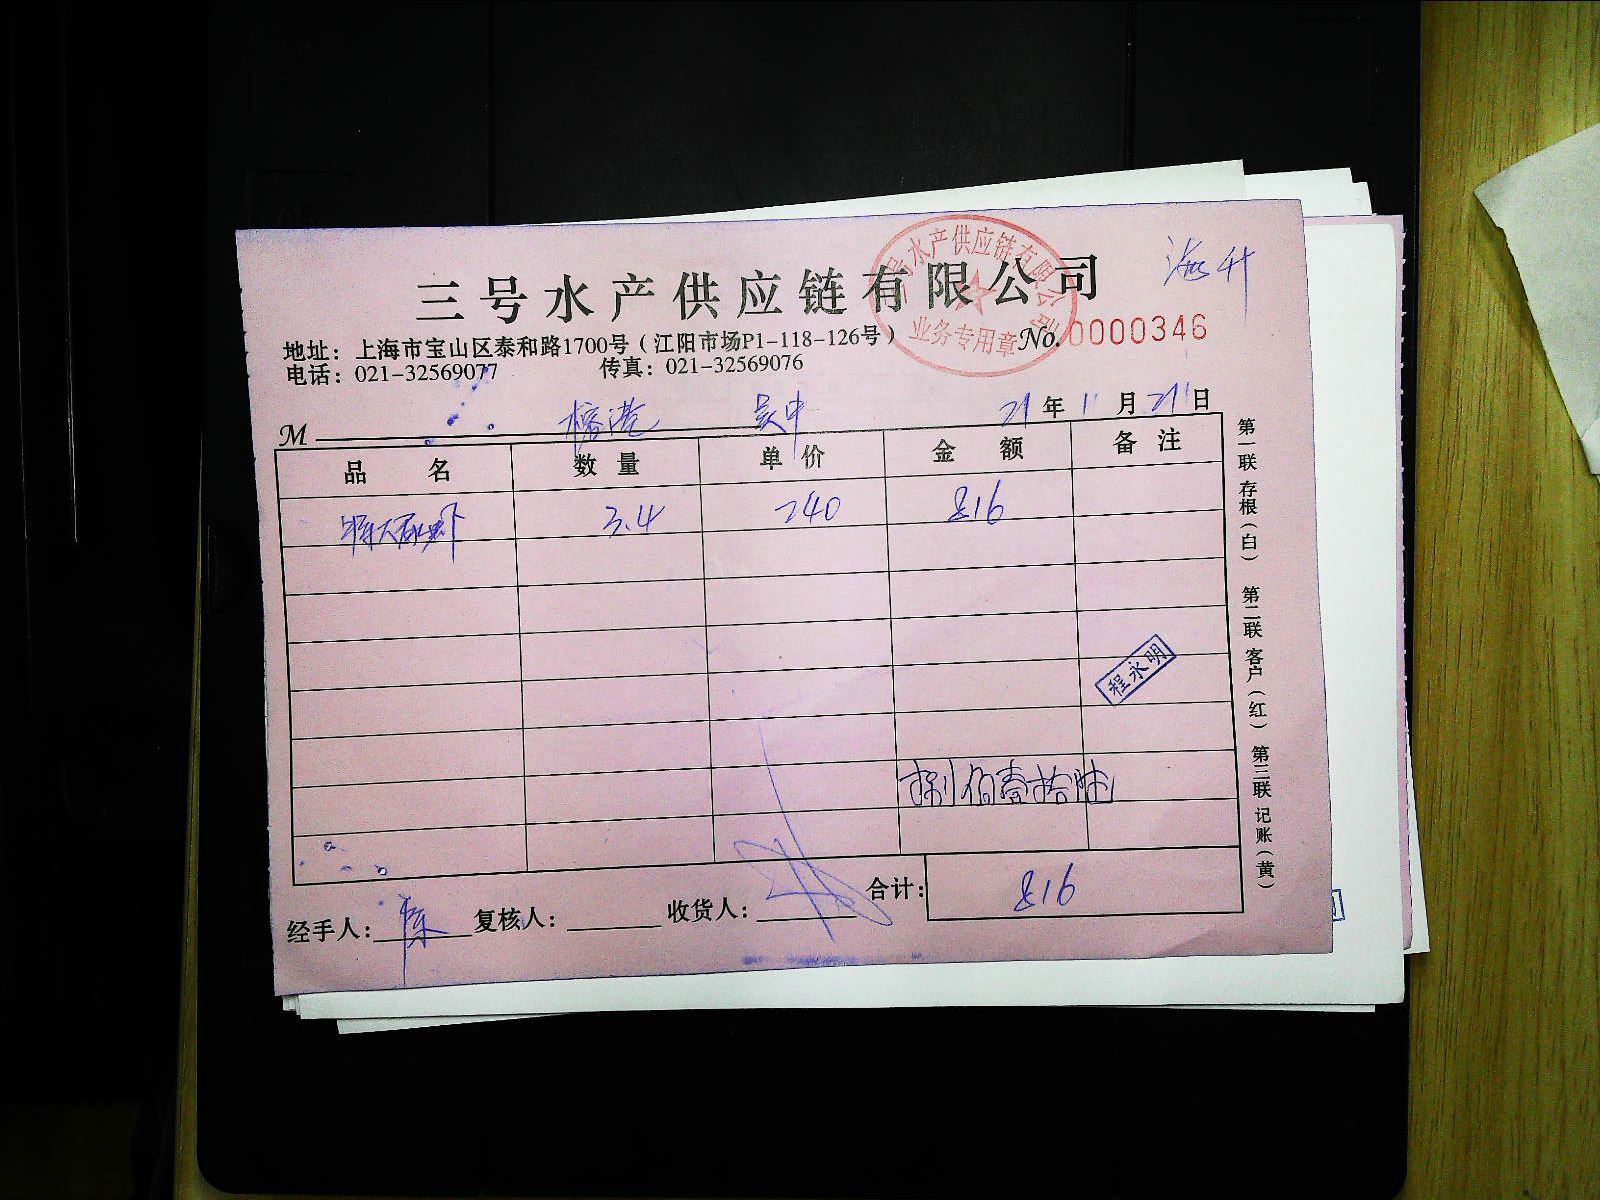 三号水产供应链有限公司
海升
三号水产供应链有限公司
业务专用章
No. 0000346
地址：上海市宝山区泰和路1700号（江阳市场P1-118-126号）
电话：021-32569077 传真：021-32569076
M 榕港 吴中 21年11月21日
品名 数量 单价 金额 备注
3.4 240 816
程永明
捌佰壹拾陆
合计：816
经手人：陈 复核人： 收货人：
第一联 存根（白） 第二联 客户（红） 第三联 记账（黄）